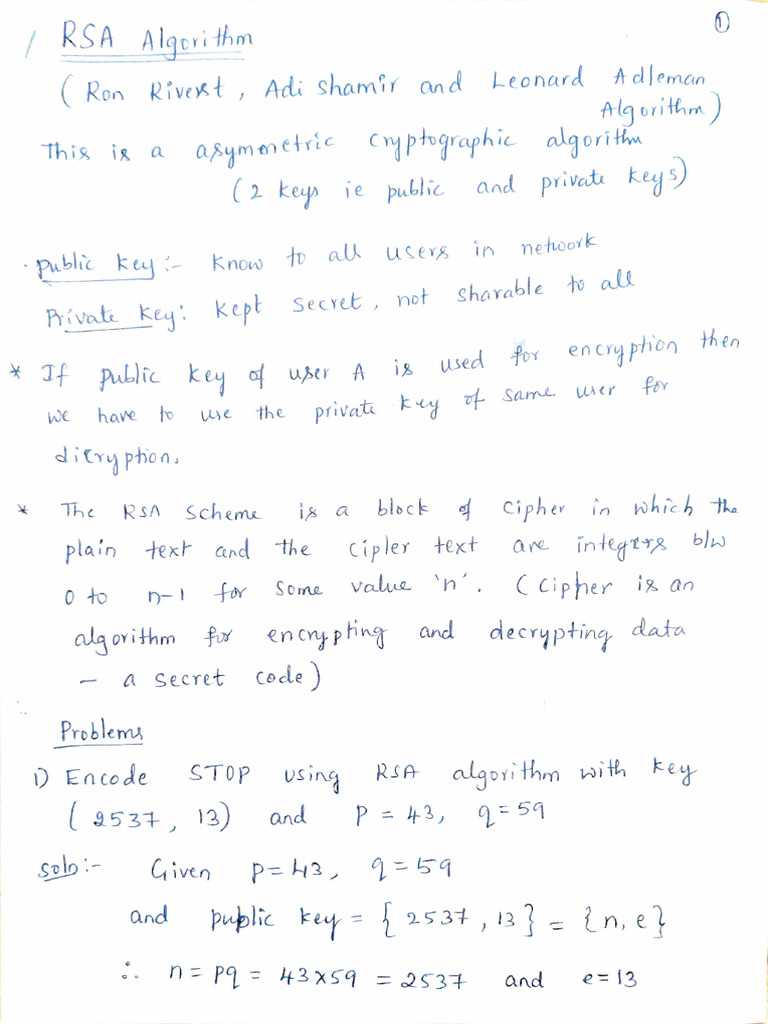 ①
RSA Algorithm
( Ron Rivest, Adi Shamir and Leonard Adleman
Algorithm)
This is a asymmetric cryptographic algorithm
(2 keys ie public and private keys)
public key :- Know to all users in network
Private Key: Kept Secret, not sharable to all
* If public key of user A is used for encryption then
we have to use the private key of same user for
dicryption.
* The RSA Scheme is a block of cipher in which the
plain text and the cipler text are integers b/w
0 to n-1 for some value 'n'. (Cipher is an
algorithm for encrypting and decrypting data
- a secret code)
Problems
1) Encode STOP using RSA algorithm with key
(2537, 13) and P = 43, q = 59
soln:- Given p = 43, q = 59
and public key = {2537, 13} = {n, e}
∴ n = pq = 43×59 = 2537 and e = 13